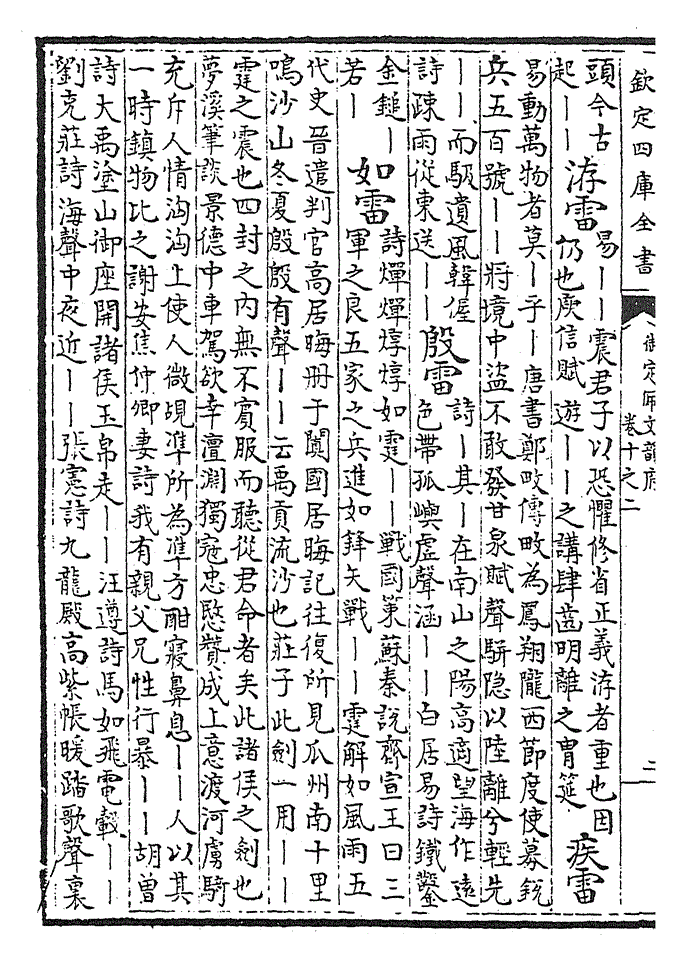 欽定四庫全書
御定佩文韻府
卷十之二
二
頭今古
起——
洊雷
易——震君子以恐懼修省正義洊者重也因
仍也庾信賦遊——之講肆齒明離之胄筵
疾雷
易動萬物者莫—乎—唐書鄭畋傳畋為鳳翔隴西節度使募銳
兵五百號——將境中盜不敢發甘泉賦聲駍隐以陸離兮輕先
——而馺遺風韓偓
詩疎雨從東送——
殷雷
詩—其—在南山之陽高適望海作遠
色帶孤嶼虛聲涵——白居易詩鐵鑿
金鎚—
若—
如雷
詩嘽嘽焞焞如霆——戰國策蘇秦說齊宣王曰三
軍之良五家之兵進如鋒矢戰——霆解如風雨五
代史晉遣判官高居晦册于闐國居晦記往復所見瓜州南十里
鳴沙山冬夏殷殷有聲——云禹貢流沙也莊子此劍一用——
霆之震也四封之内無不賓服而聽從君命者矣此諸侯之劍也
夢溪筆談景德中車駕欲幸澶淵獨寇忠愍贊成上意渡河虜騎
充斥人情洶洶上使人微覘凖所為凖方酣寢鼻息——人以其
一時鎮物比之謝安焦仲卿妻詩我有親父兄性行暴——胡曾
詩大禹塗山御座開諸侯玉帛走——汪遵詩馬如飛電轂——
劉克莊詩海聲中夜近——張憲詩九龍殿高紫帳暖踏歌聲裏